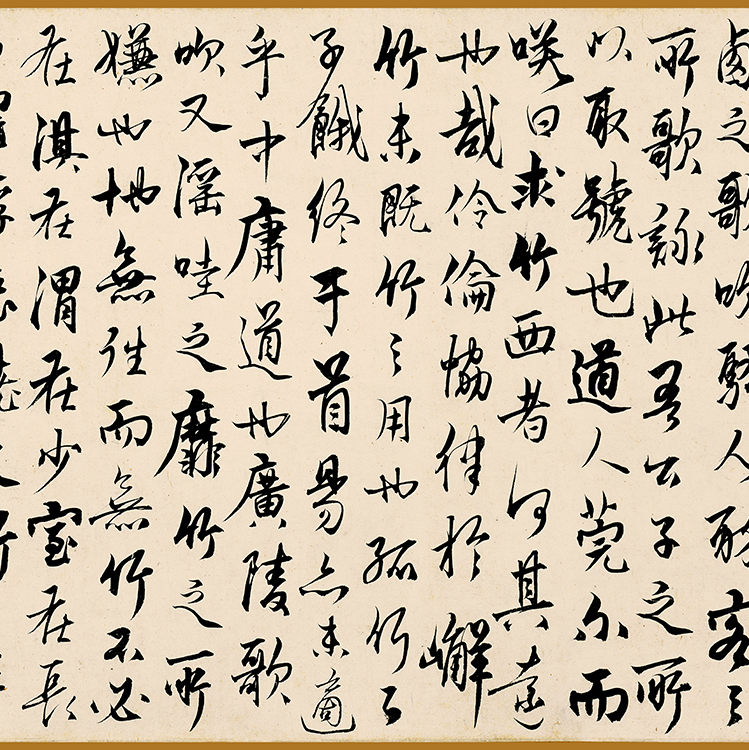 之歌吹騷人醉客之
所歌詠此吾公子之所
以取號也道人莞尔而
咲曰求竹西者何其遠
也哉伶倫恊律於嶰
竹未既竹之用也孤竹之
子餓終于首昜亦未適
乎中庸道也廣陵歌
吹又滛哇之靡竹之所
嫌也地無往而無竹不必
在淇在渭在少室在長